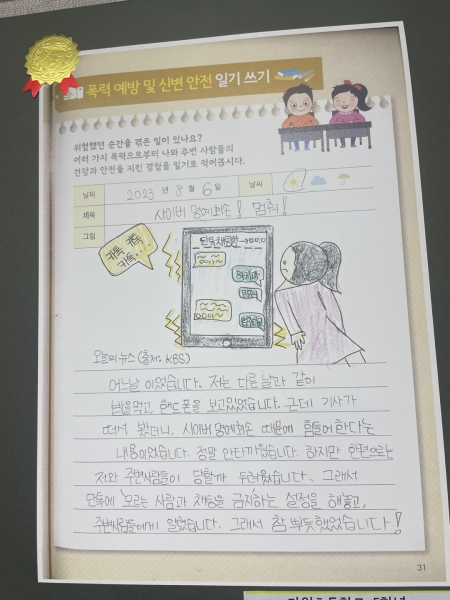 폭력 예방 및 신변 안전 일기 쓰기
위험했던 순간을 겪은 일이 있나요?
여러 가지 폭력으로부터 나와 주변 사람들의
건강과 안전을 지킨 경험을 일기로 적어봅시다.
날짜 2023 년 8 월 6 일 날씨
제목 사이버 명예훼손! 멈춰!
그림
카톡 카톡
카톡...
단톡채팅방
오늘의 뉴스 (출처: KBS)
어느날 이었습니다. 저는 다른날과 같이
밥을먹고, 핸드폰을 보고있었습니다. 근데 기사가
떠서 봤더니, 사이버명예훼손 때문에 힘들어한다는
내용이었습니다. 정말 안타까웠습니다. 하지만 한편으로는
저와 주변사람들이 당할까 두려웠습니다. 그래서
단톡에 '모르는 사람과 채팅을 금지'하는 설정을 해놓고,
주변사람들에게 알렸습니다. 그래서 참 뿌듯했었습니다!
31